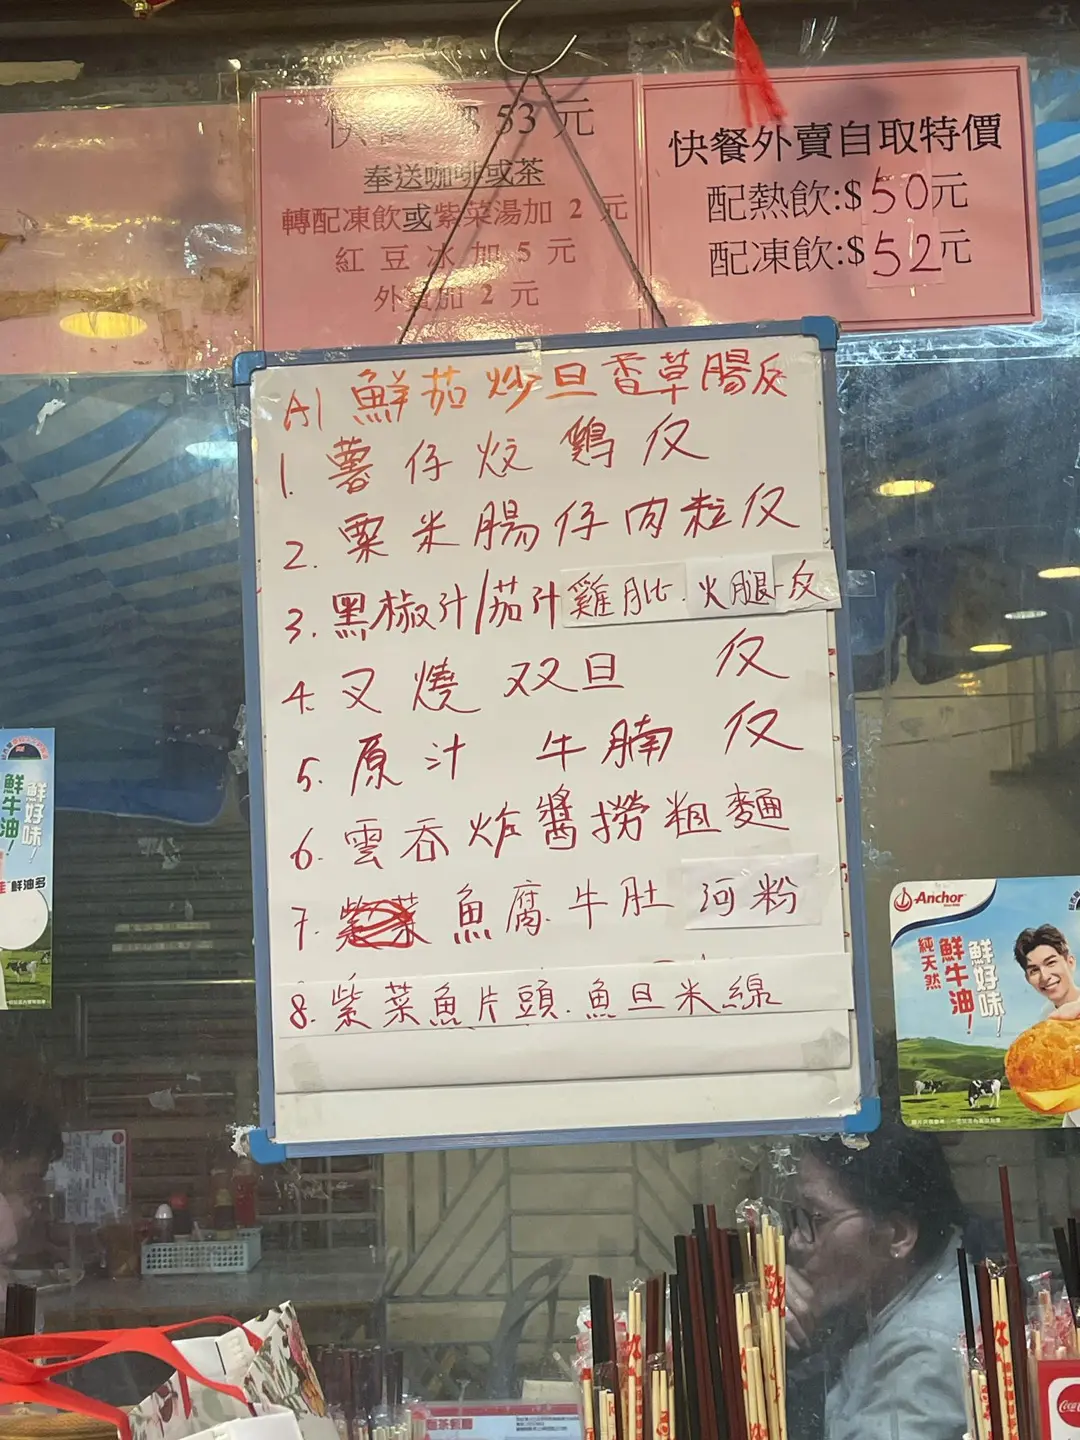 快餐 $ 53 元
奉送咖啡或茶
轉配凍飲或紫菜湯加 2 元
紅豆冰加 5 元
外賣加 2 元
快餐外賣自取特價
配熱飲:$50元
配凍飲:$52元
A1 鮮茄炒旦香草腸反
1. 薯仔炆鷄反
2. 粟米腸仔肉粒反
3. 黑椒汁/茄汁雞肶.火腿反
4. 叉燒双旦 反
5. 原汁 牛腩 反
6. 雲吞炸醬撈粗麵
7. 魚腐.牛肚 河粉
8. 紫菜魚片頭.魚旦米線
鮮好味!
鮮牛油!
鮮油多
Anchor
鮮好味!
鮮牛油!
純天然